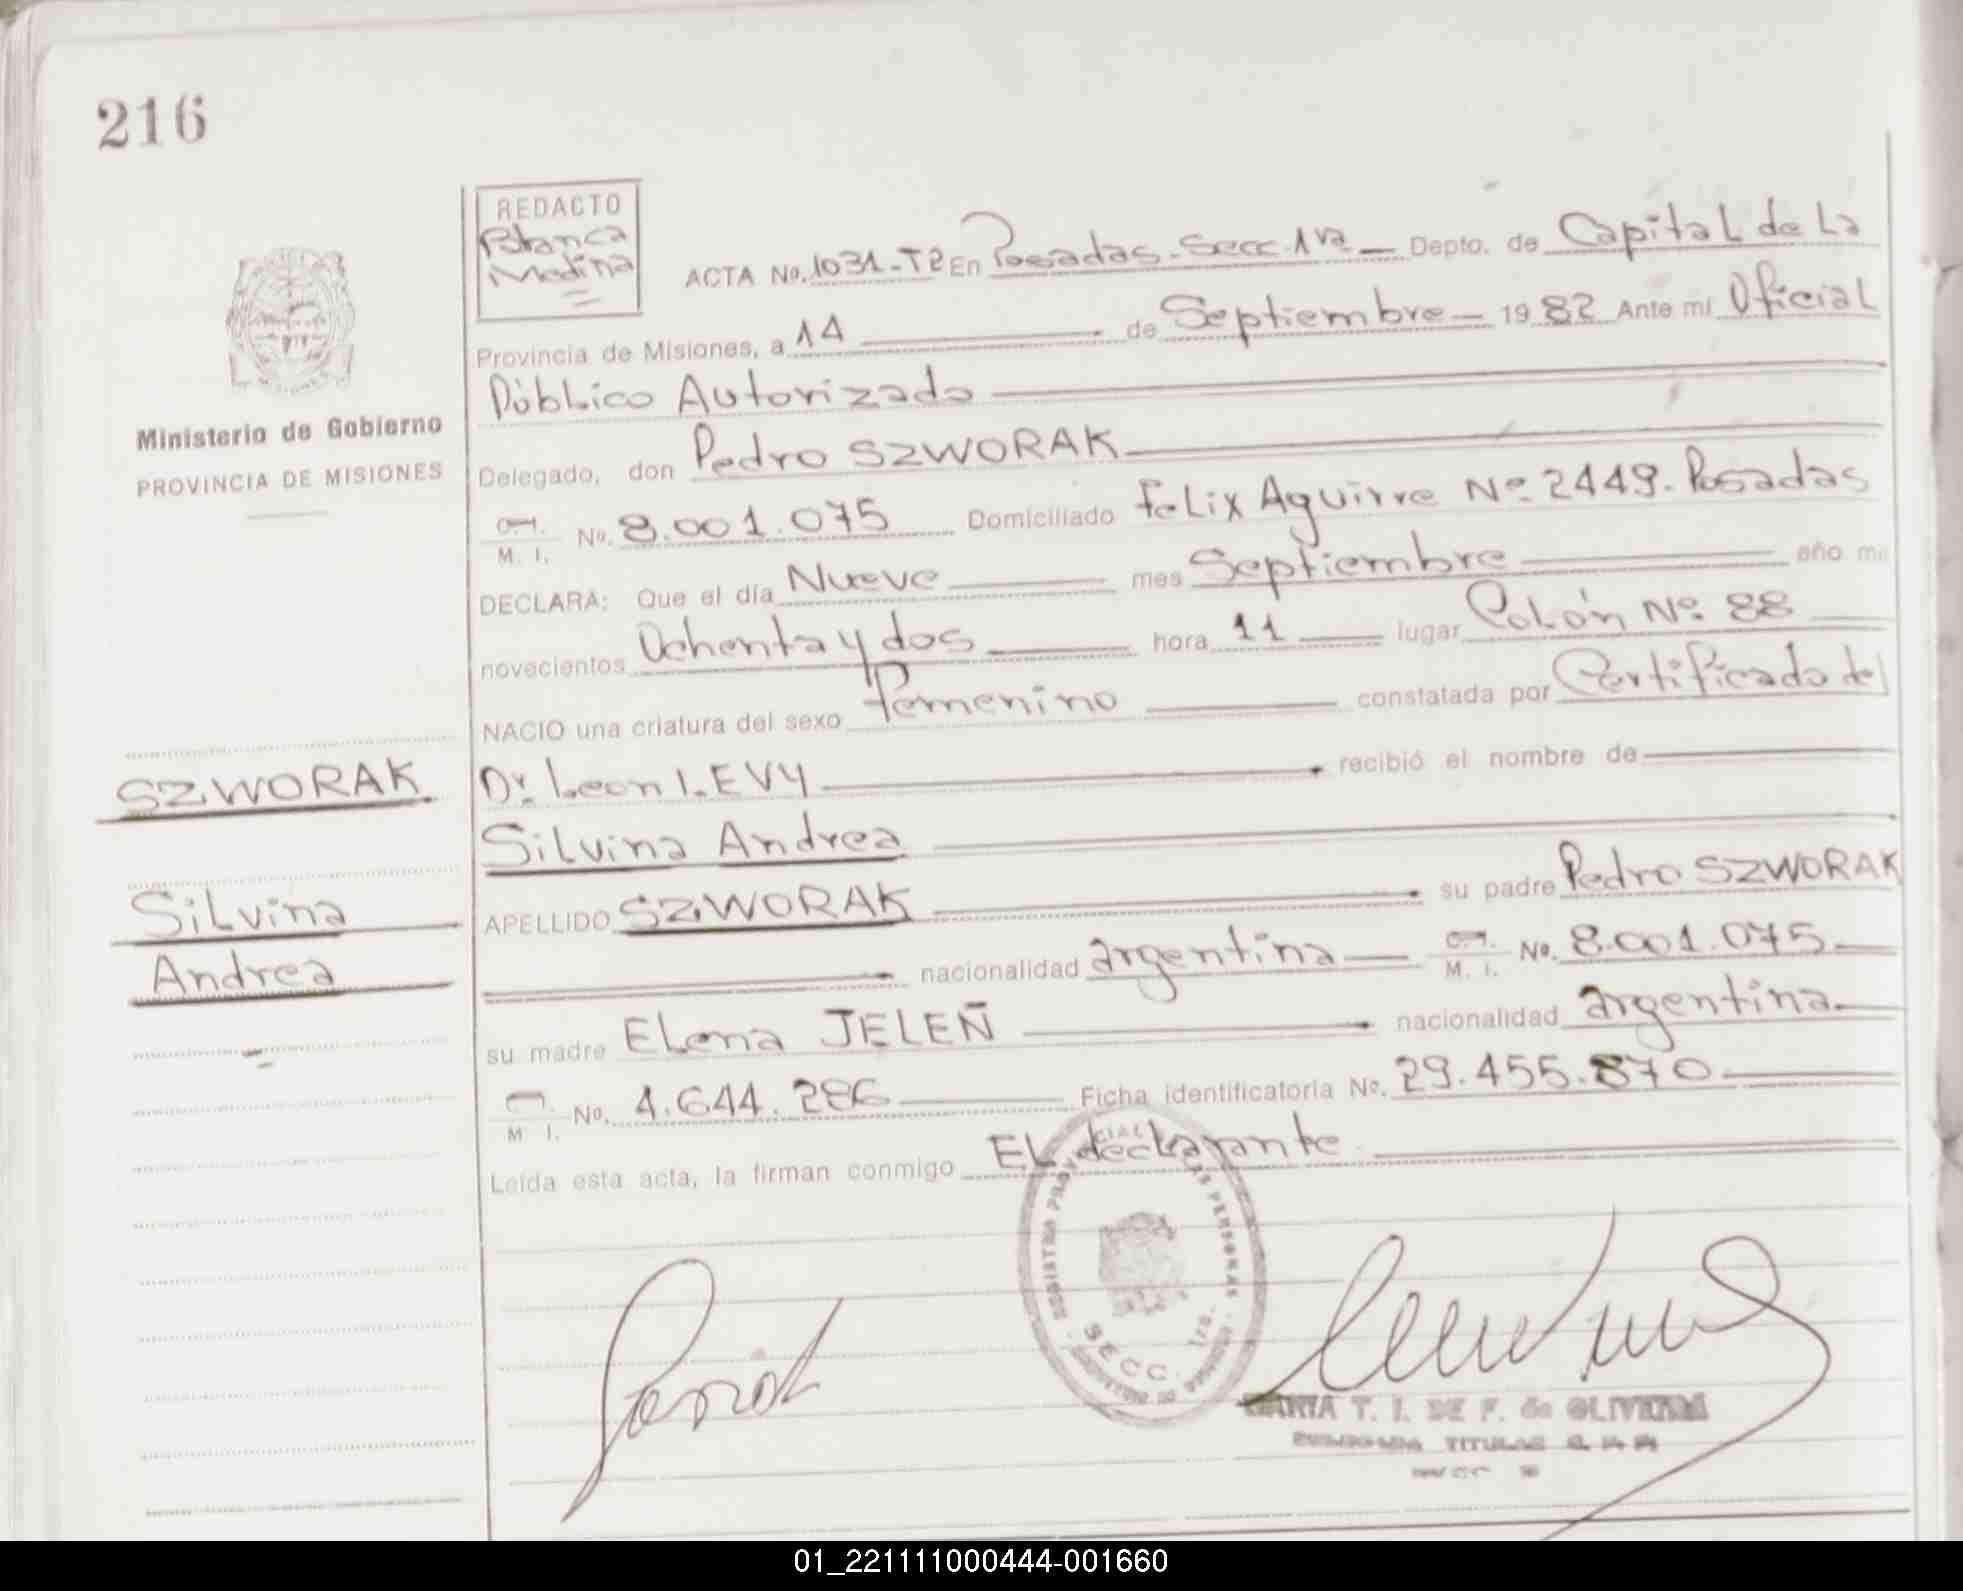 216
REDACTO
Blanca
Medina
ACTA No. 1031-T2 En Posadas-Secc. 1ra Depto. de Capital de La
Provincia de Misiones, a 14 de Septiembre 1982 Ante mí Oficial
Público Autorizado
Ministerio de Gobierno
PROVINCIA DE MISIONES
Delegado, don Pedro SZWORAK
M. I. No. 8.001.075 Domiciliado Felix Aguirre Nº 2449. Posadas
DECLARA: Que el día Nueve mes Septiembre año mi
novecientos Ochenta y dos hora 11 lugar Colón Nº 88
NACIO una criatura del sexo Femenino constatada por Certificado del
SZWORAK
Dr. Leon LEVY recibió el nombre de
Silvina Andrea
Silvina
Andrea
APELLIDO SZWORAK su padre Pedro SZWORAK
nacionalidad argentina M. I. No. 8.001.075
su madre Elena JELEÑ nacionalidad argentina
M I. No. 4.644.286 Ficha identificatoria No. 29.455.870
Leída esta acta, la firman conmigo El declarante
SECC. 1ra.
T. I. DE F. de OLIVEIRA
TITULAR
01_221111000444-001660